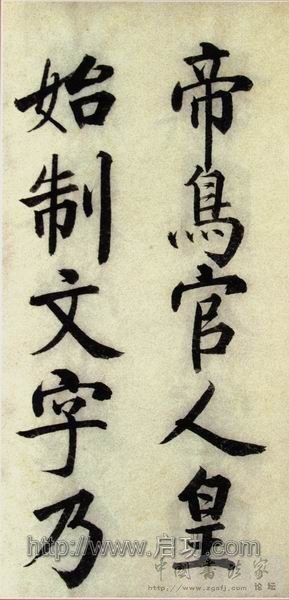 帝鳥官人皇
始制文字乃
http://www.启功.com
中国书法家
论坛
http://www.zgsfj.com